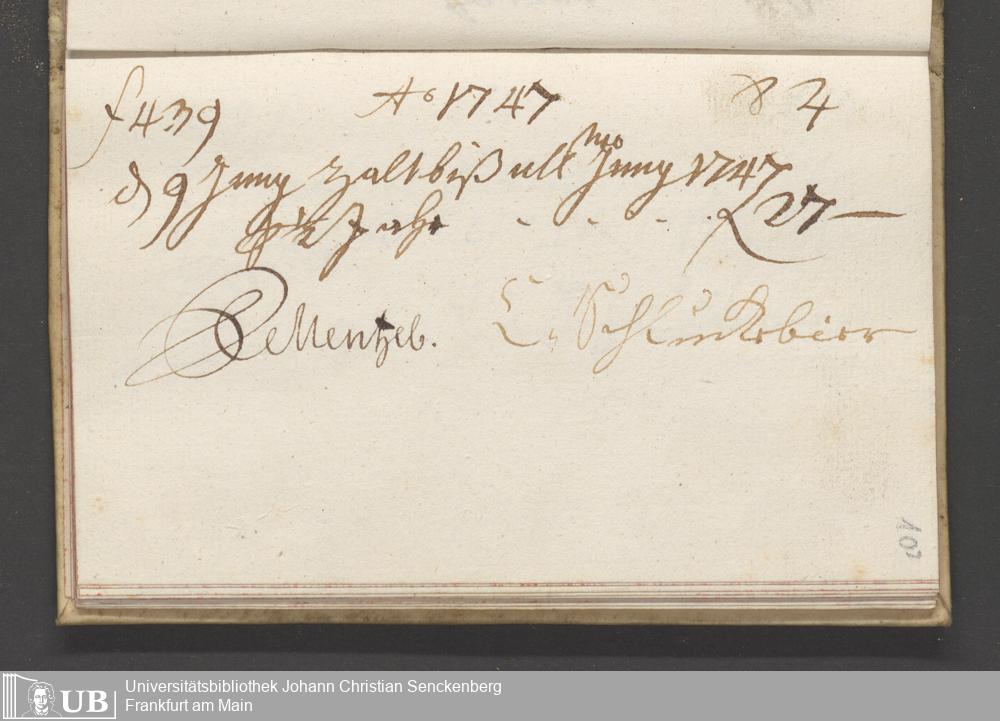 f 439 Ao 1747 4
d 9 Juny zalt biß ult mo Juny 1747
p ½ Jahr - - - f 27 —
Mentzel. C. Schluckebier
103
Universitätsbibliothek Johann Christian Senckenberg
UB Frankfurt am Main